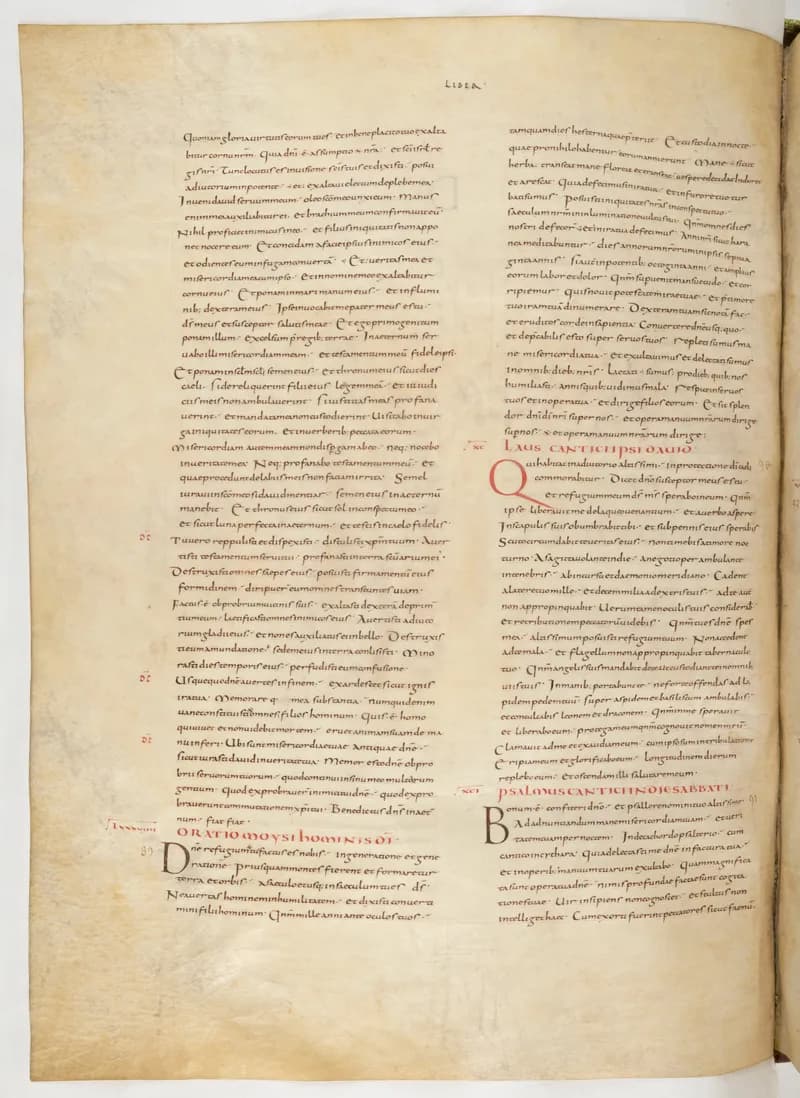 LIBER
Quoniam gloria uirtutis eorum tu es · et inbeneplacito tuo exalta
bitur cornu nrm · Quia dni ē assumptio nra · et sci isrl re
gis nri · Tunc locutus es inuisione scis tuis et dixisti · posui
adiutorium inpotente · et exaltaui electum deplebe mea ·
Inueni dauid seruum meum · oleo sco meo unxi eum · Manus
enim mea auxiliabitur ei · et brachium meum confirmauit eū ·
Nihil proficiet inimicus in eo · et filius iniquitatis non appo
net nocere eum · Et concidam afacie ipsius inimicos eius ·
et odientes eum infugam conuertā · Et ueritas mea et
misericordia mea cum ipso · Et innomine meo exaltabitur
cornu eius · Et ponam inmari manum eius · et influmi
nib; dexteram eius · Ipse inuocabit me pater meus es tu ·
ds meus et susceptor salutis meae · Et ego primogenitum
ponam illum · excelsum p regib; terrae · Inaeternum ser
uabo illi misericordiam meam · et testamentum meū fidele ipsi ·
Et ponam insclm scli semen eius · et thronum eius sicut dies
caeli · Si dereliquerint filii eius legem meā · et in iudi
ciis meis non ambulauerint · Si iustitias meas profana
uerint · et mandata mea non custodierint · Uisitabo inuir
ga iniquitates eorum · et inuerberib; peccata eorum ·
Misericordiam autem meam non dispgam ab eo · neq; nocebo
inueritate mea · Neq; profanabo testamentum meū · et
quae procedunt delabiis meis non faciam irrita · Semel
iuraui insco meo si dauid mentiar · semen eius inaeternū
manebit · Et thronus eius sicut sol inconspectu meo ·
et sicut luna perfecta inaeternum · et testis incaelo fidelis ·
Tu uero reppulisti et dispexisti · distulisti xpm tuum · Auer
tisti testamentum serui tui · profanasti interra scuarium ei ·
Destruxisti omnes saepes eius · posuisti firmamentū eius
formidinem · diripuer eum omnes transeuntes uiam ·
Factus ē obprobrium uicinis suis · exaltasti dexterā deprim
tium eum · laetificasti omnes inimicos eius · Auertisti adiuto
rium gladii eius · et non es auxiliatus ei inbello · Destruxis
ti eum amundatione · sedem eius interra conlisisti · Mino
rasti dies temporis eius · perfudisti eum confusione ·
Usquequo dne auertis infinem · exardescet sicut ignis
ira tua · Memorare q mea substantia · numquid enim
uane constituisti omnes filios hominum · Quis ē homo
qui uiuet et non uidebit mortem · eruet animam suam dema
nu inferi · Ubi sunt misericordiae tuae antiquae dne ·
sicut iurasti dauid inueritate tua · Memor esto dne obpro
brii seruorum tuorum · quod continui insinu meo multorum
gentium · Quod exprobrauer inimici tui dne · quod expro
brauerunt commutationem xpi tui · Benedictus dns inaet
num · fiat fiat ·
LXXXVIIII ORATIO MOYSI HOMINIS DĪ ·
Dne refugium factus es nobis · ingeneratione et gene
ratione · Priusquam montes fierent et formaretur
terra et orbis · asaeculo et usq; insaeculum tu es ds ·
Ne auertas hominem inhumilitatem · et dixisti conuerti
mini filii hominum · Qnm mille anni ante oculos tuos ·
tamquam dies hesterna quae pterit · Et custodia in nocte ·
quae pro nihilo habentur eorum anni erunt · Mane sicut
herba transeat mane floreat et transeat uespere decidat induret
et arescat · Quia defecimus inira tua · et infurore tuo tur
bati sumus · Posuisti iniquitates nras inconspectu tuo ·
saeculum nrm ininluminatione uultus tui · Qnm omnes dies
nostri defecer · et inira tua defecimus · Anni nri sicut hara
nea meditabuntur · dies annorum nrorum inipsis septua
ginta annis · Si autē inpotentib; octoginta anni · et amplius
eorum labor et dolor · Qnm supuenit mansuetudo · et cor
ripiemur · Quis nouit potestatem irae tuae · et ptimore
tuo iram tuā dinumerare · Dexteram tuam sic notā fac ·
et eruditos corde insapientia · Conuertere dne usq; quo ·
et depcabilis esto super seruos tuos · Repleti sumus ma
ne misericordia tua · et exultauimus et delectati sumus
inomnib; dieb; nris · Laetati sumus · prodieb; quib; nos
humiliasti · annis quib; uidimus mala · Respice inseruos
tuos et inopera tua · et dirige filios eorum · Et sit splen
dor dni di nri super nos · et opera manuum nrarum dirige
sup nos · et opus manuum nrarum dirige :
XC LAUS CANTICI IPSI DAUID
Qui habitat inadiutorio altissimi · inprotectione di caeli
commorabitur · Dicet dno susceptor meus es tu ·
et refugium meum ds ms sperabo in eum · Qnm
ipse liberauit me delaqueo uenantium · et auerbo aspero ·
Inscapulis suis obumbrabit tibi · et subpennis eius sperabis ·
Scuto circumdabit te ueritas eius · non timebis atimore noc
turno · Asagitta uolante indie · anegotio perambulante
intenebris · abincursu et daemonio meridiano · Cadent
alatere tuo mille · et decem milia adextris tuis · ad te aut
non appropinquabit · Uerumtamen oculis tuis considerab
et retributionem peccatorum uidebis · Qnm tu es dne spes
mea · altissimum posuisti refugium tuum · Non accedent
ad te mala · et flagellum non appropinquabit tabernaculo
tuo · Qnm angelis suis mandabit de te ut custodiant te inomnib
uiis tuis · Inmanib; portabunt te · ne forte offendas adla
pidem pedem tuū · Super aspidem et basiliscum ambulabis ·
et conculcabis leonem et draconem · Qnm inme sperauit
et liberabo eum · protegam eum qnm cognouit nomen meū ·
Clamauit ad me et exaudiam eum · cum ipso sum intribulatione
eripiam eum et glorificabo eum · longitudinem dierum
replebo eum · et ostendam illi salutare meum ·
XCI PSALMUS CANTICI IN DIE SABBATI
Bonum ē confiteri dno · et psallere nomini tuo altissime ·
Ad adnuntiandum mane misericordiam tuam · et ueri
tatem tuam per noctem · Indecachordo psalterio · cum
cantico in cythara · Quia delectasti me dne infactura tua ·
et inoperib; manuum tuarum exultabo · Quam magnifica
ta sunt opera tua dne · nimis profundae factae sunt cogita
tiones tuae · Uir insipiens non cognoscet · et stultus non
intelliget haec · Cum exorti fuerint peccatores sicut faenū ·